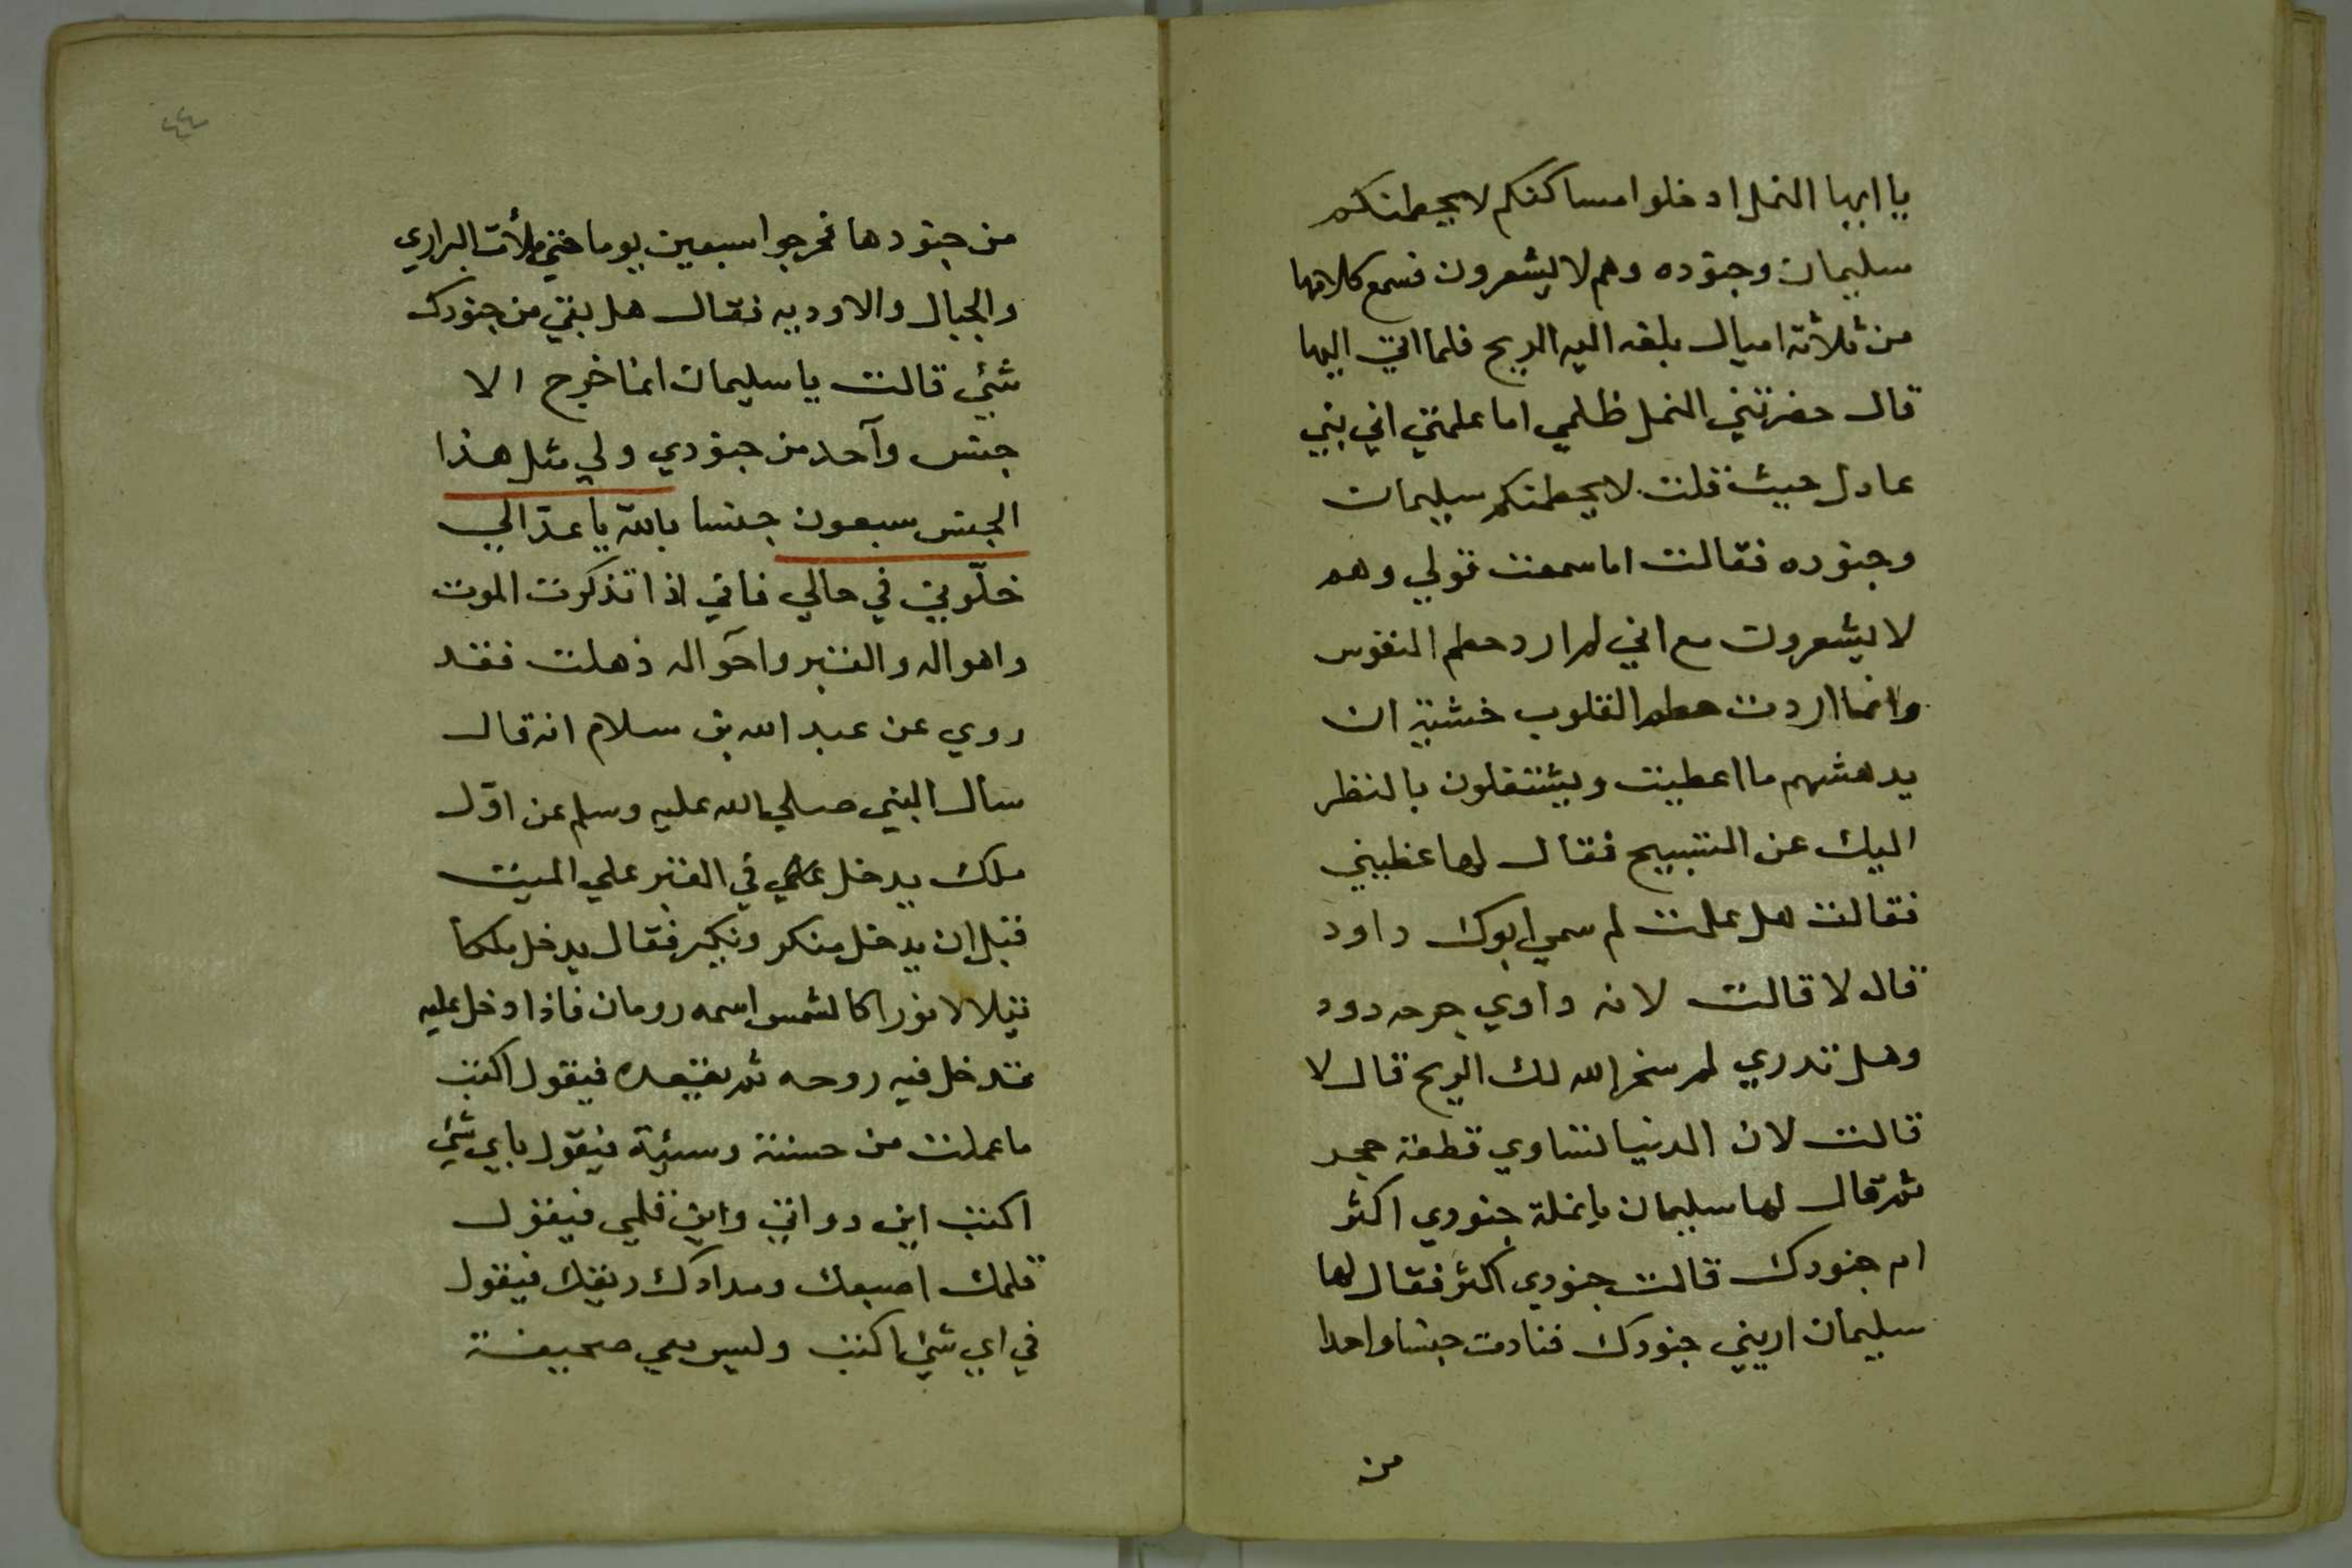 يا ايها النمل ادخلوا مساكنكم لا يحطمنكم
سليمان وجنوده وهم لا يشعرون فسمع كلامها
من ثلاثة اميال بلغه اليه الريح فلما اتي اليها
قال حضرتني النمل ظلمي اما علمتي اني بني
عادل حيث قلت لا يحطمنكم سليمان
وجنوده فقالت اما سمعت قولي وهم
لا يشعرون مع اني لم ارد حطم النفوس
وانما اردت حطم القلوب خشية ان
يدهشهم ما اعطيت ويشتغلون بالنظر
اليك عن التسبيح فقال لها عظيني
فقالت هل علمت لم سمي ابوك داود
قال لا قالت لانه داوي جرحه دود
وهل تدري لم سخر الله لك الريح قال لا
قالت لان الدنيا لتساوي قطعة حجر
ثم قال لها سليمان يا نملة جنودي اكثر
ام جنودك قالت جنودي اكثر فقال لها
سليمان اريني جنودك فنادت جنسا واحدا
من
٤٤
من جنودها فخرجوا سبعين يوما حتي ملأت البراري
والجبال والاوديه فقال هل بقي من جنودك
شئي قالت يا سليمان انما خرج الا
جنس وآحد من جنودي ولي مثل هذا
الجنس سبعون جنسا بالله يا عذالي
خلّوني في حالي فاني اذا تذكرت الموت
واهواله والقبر واحواله ذهلت فقد
روي عن عبد الله بن سلام انه قال
سأل النبي صلي الله عليه وسلم عن اوّل
ملك يدخل في القبر علي الميت
قبل ان يدخل منكر ونكير فقال يدخل ملكا
يتلالا نورا كالشمس اسمه رومان فاذا دخل عليه
تدخل فيه روحه ثم يقعده فيقول اكتب
ما عملت من حسنة وسيئة فيقول باي شئ
اكتب اين دواتي واين قلمي فيقول
قلمك اصبعك ومدادك ريقك فيقول
في اي شئ اكتب وليس معي صحيفة